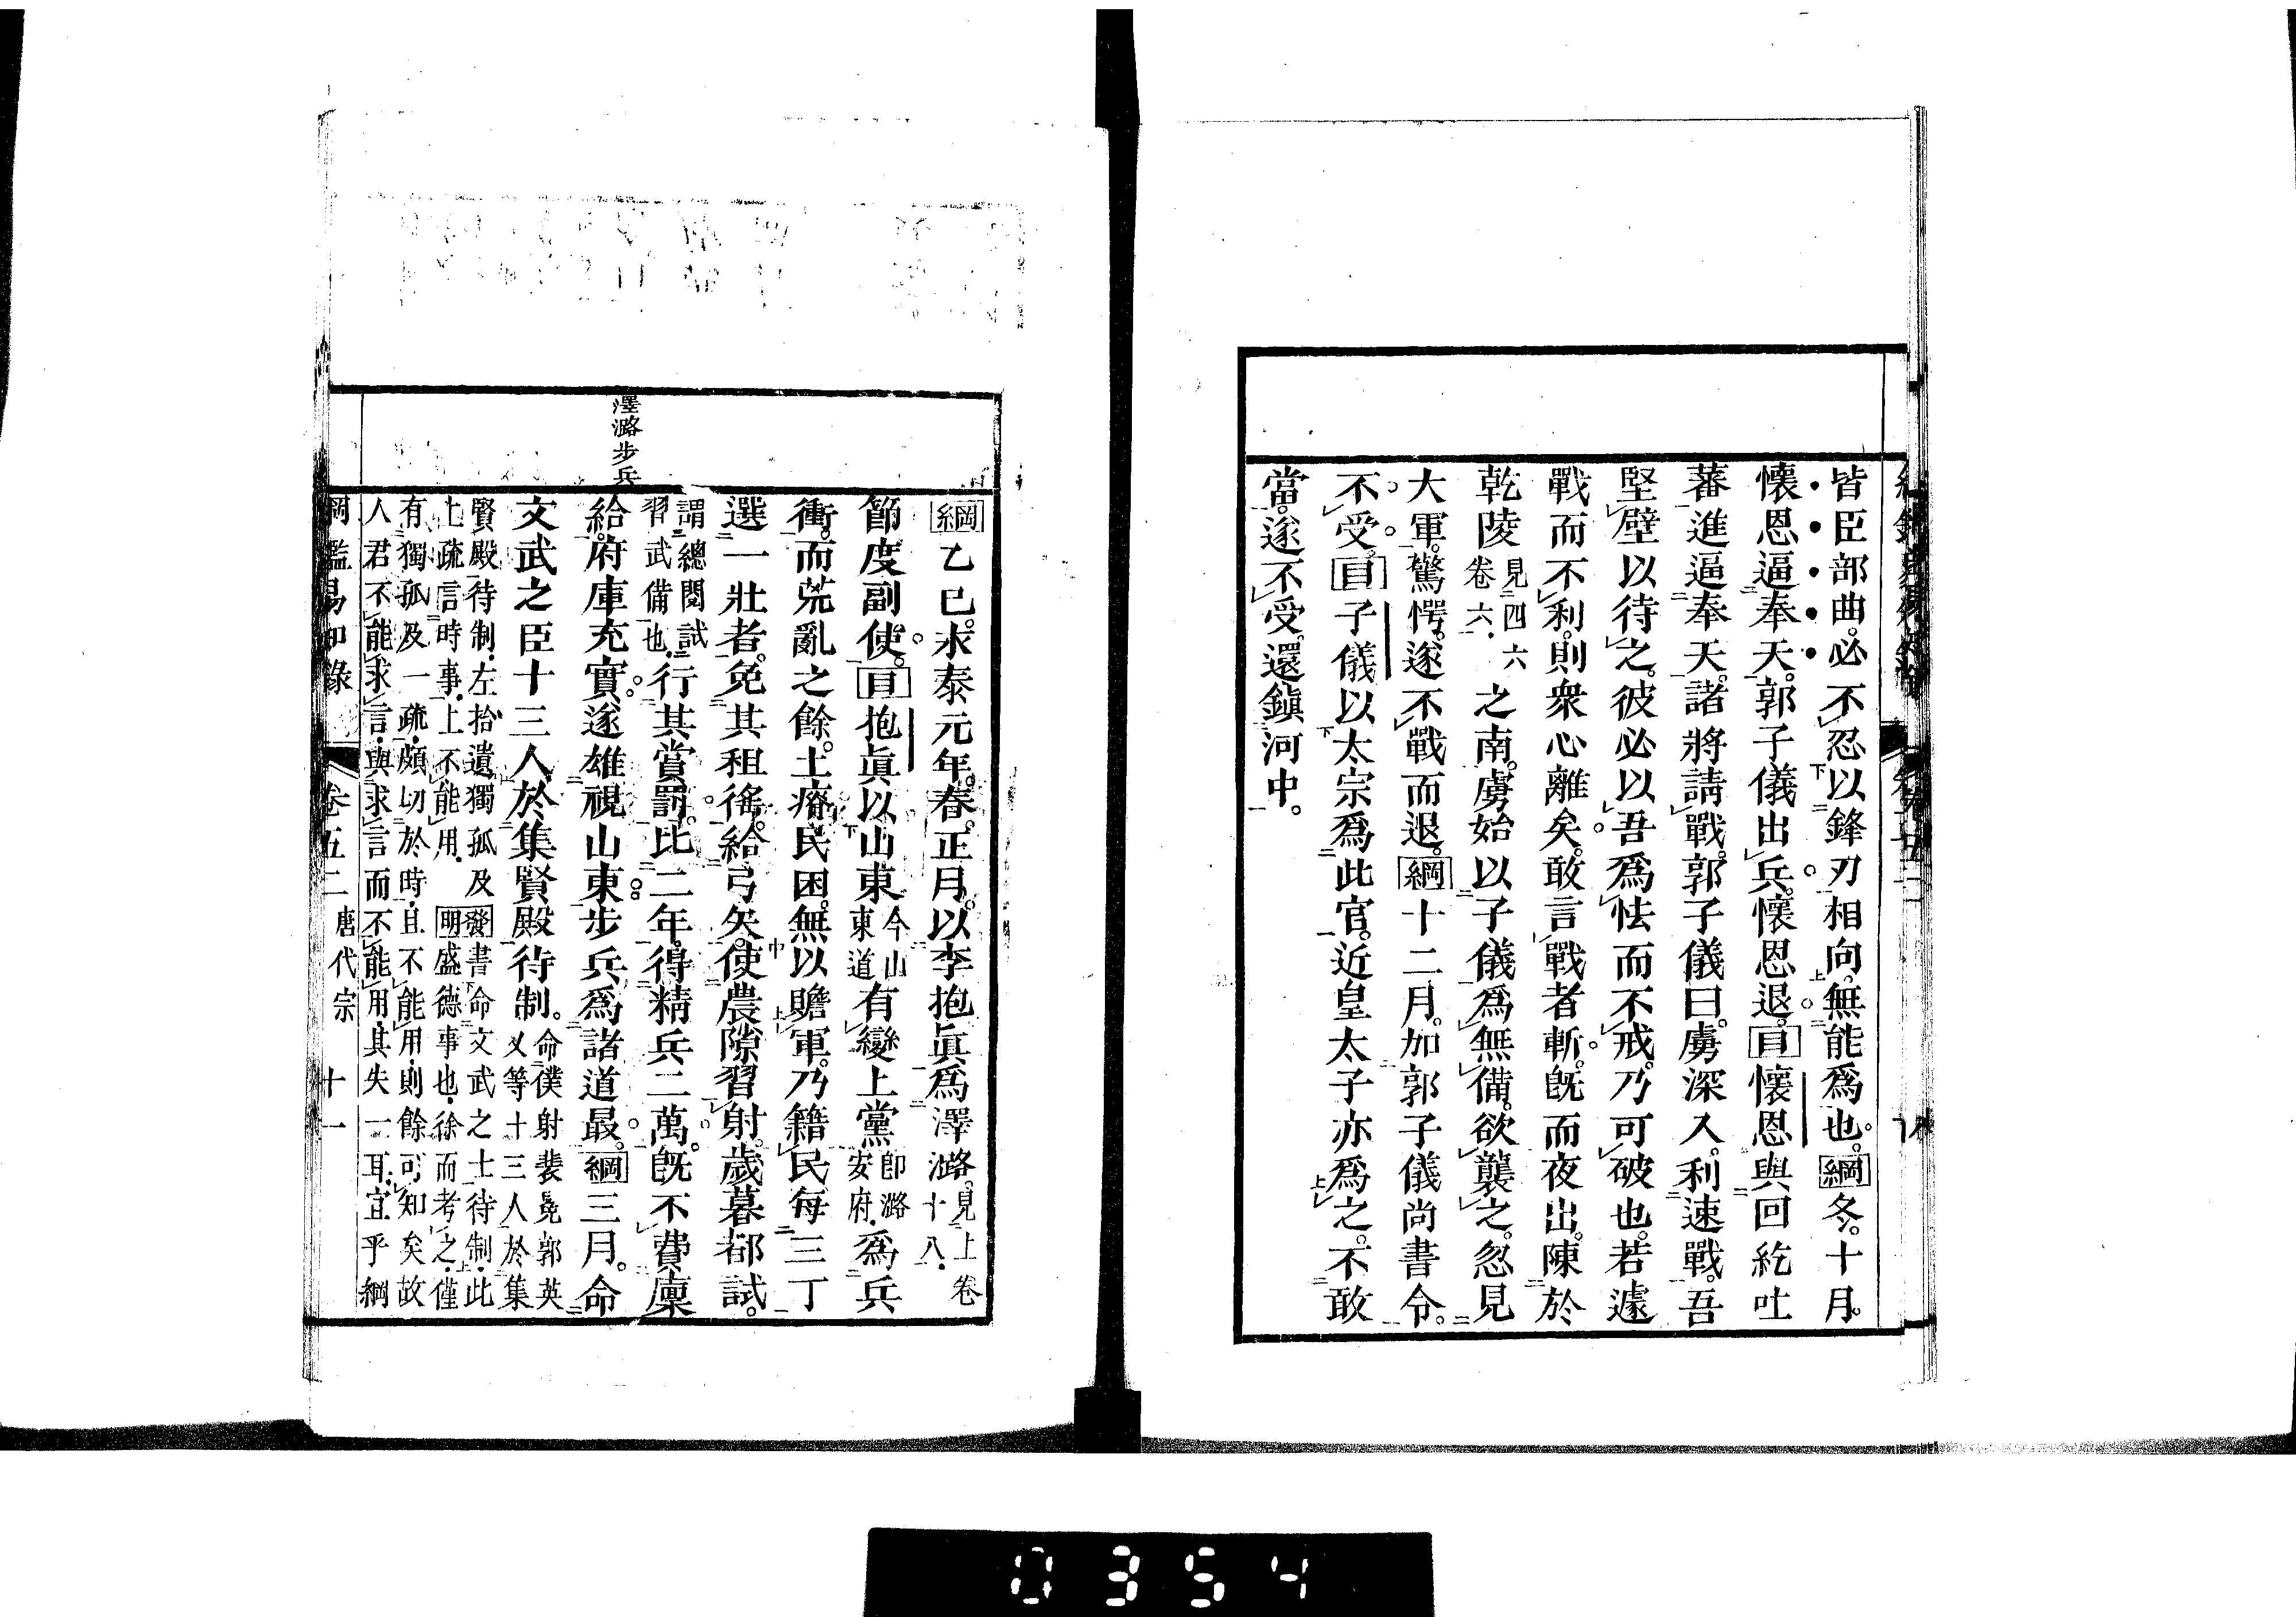 皆臣部曲。必不忍以鋒刃相向。無能爲也。綱冬。十月。
懷恩逼奉天。郭子儀出兵。懷恩退。目懷恩與回紇吐
蕃進逼奉天。諸將請戰。郭子儀曰。虜深入。利速戰。吾
堅壁以待之。彼必以吾爲怯而不戒。乃可破也。若遽
戰而不利。則衆心離矣。敢言戰者斬。旣而夜出。陳於
乾陵見四六卷六之南。虜始以子儀爲無備。欲襲之。忽見
大軍。驚愕。遂不戰而退。綱十二月。加郭子儀尚書令。
不受。目子儀以太宗爲此官。近皇太子亦爲之。不敢
當。遂不受。還鎭河中。
澤潞步兵
綱乙巳。永泰元年。春。正月。以李抱眞爲澤潞。見上卷十八
節度副使。目抱眞以山東今山東道有變上黨卽潞安府爲兵
衝。而荒亂之餘。土瘠民困。無以贍軍。乃籍民每三丁
選一壯者。免其租徭。給弓矢。使農隙習射。歲暮都試。
謂總閱試習武備也行其賞罰。比二年。得精兵二萬。旣不費廩
給。府庫充實。遂雄視山東。步兵爲諸道最。綱三月。命
文武之臣十三人。於集賢殿待制。命僕射裴冕郭英乂等十三人於集
賢殿待制。左拾遺獨孤及上疏言時事。上不能用。發明書命文武之士待制。此盛德事也。徐而考之。僅
有獨孤及一疏。頗切於時。且不能用。則餘可知矣。故
人君不能求言。與求言而不能用。其失一耳。宜乎綱
綱鑑易知錄 卷五二 唐代宗 十一